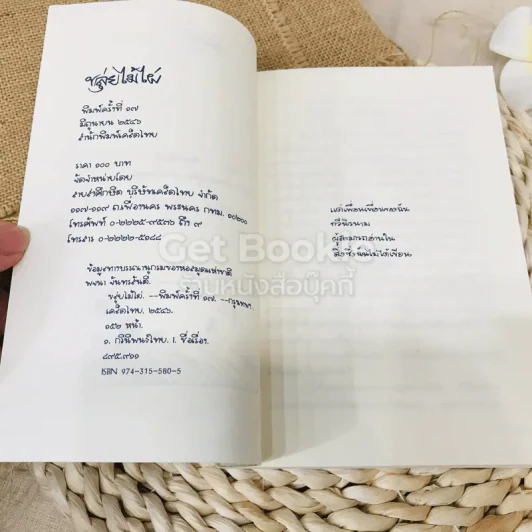 ขลุ่ยไม้ไผ่
พิมพ์ครั้งที่ ๑๗
มิถุนายน ๒๕๔๖
สำนักพิมพ์เคล็ดไทย
ราคา ๑๐๐ บาท
จัดจำหน่ายโดย
สายส่งศึกษิต บริษัทเคล็ดไทย จำกัด
๑๑๗-๑๑๙ ถ.เฟื่องนคร พระนคร กทม. ๑๐๒๐๐
โทรศัพท์ ๐-๒๒๒๕-๙๕๓๖ ถึง ๙
โทรสาร ๐-๒๒๒๒-๕๑๘๘
ข้อมูลทางบรรณานุกรมของหอสมุดแห่งชาติ
พจนา จันทรสันติ.
ขลุ่ยไม้ไผ่. --พิมพ์ครั้งที่ ๑๗. --กรุงเทพฯ.
เคล็ดไทย, ๒๕๔๖.
๑๕๒ หน้า.
๑. กวีนิพนธ์ไทย. I. ชื่อเรื่อง.
๘๙๕.๙๑๑
ISBN 974-315-580-5
แด่เพื่อนเพื่อนของฉัน
กวีนิรนาม
ผู้สามารถอ่านใน
สิ่งซึ่งฉันไม่ได้เขียน
Get Bookie
ร้านหนังสือบุ๊คกี้